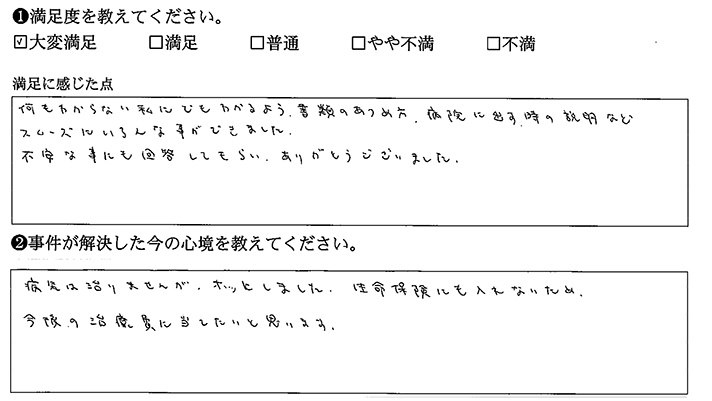 ❶満足度を教えてください。
☑大変満足 □満足 □普通 □やや不満 □不満
満足に感じた点
何もわからない私にでもわかるよう、書類のあつめ方、病院に出す時の説明など
スムーズにいろんな事ができました。
不安な事にも回答してもらい、ありがとうございました。
❷事件が解決した今の心境を教えてください。
病気は治りませんが、ホッとしました。生命保険にも入れないため、
今後の治療費に当てたいと思います。